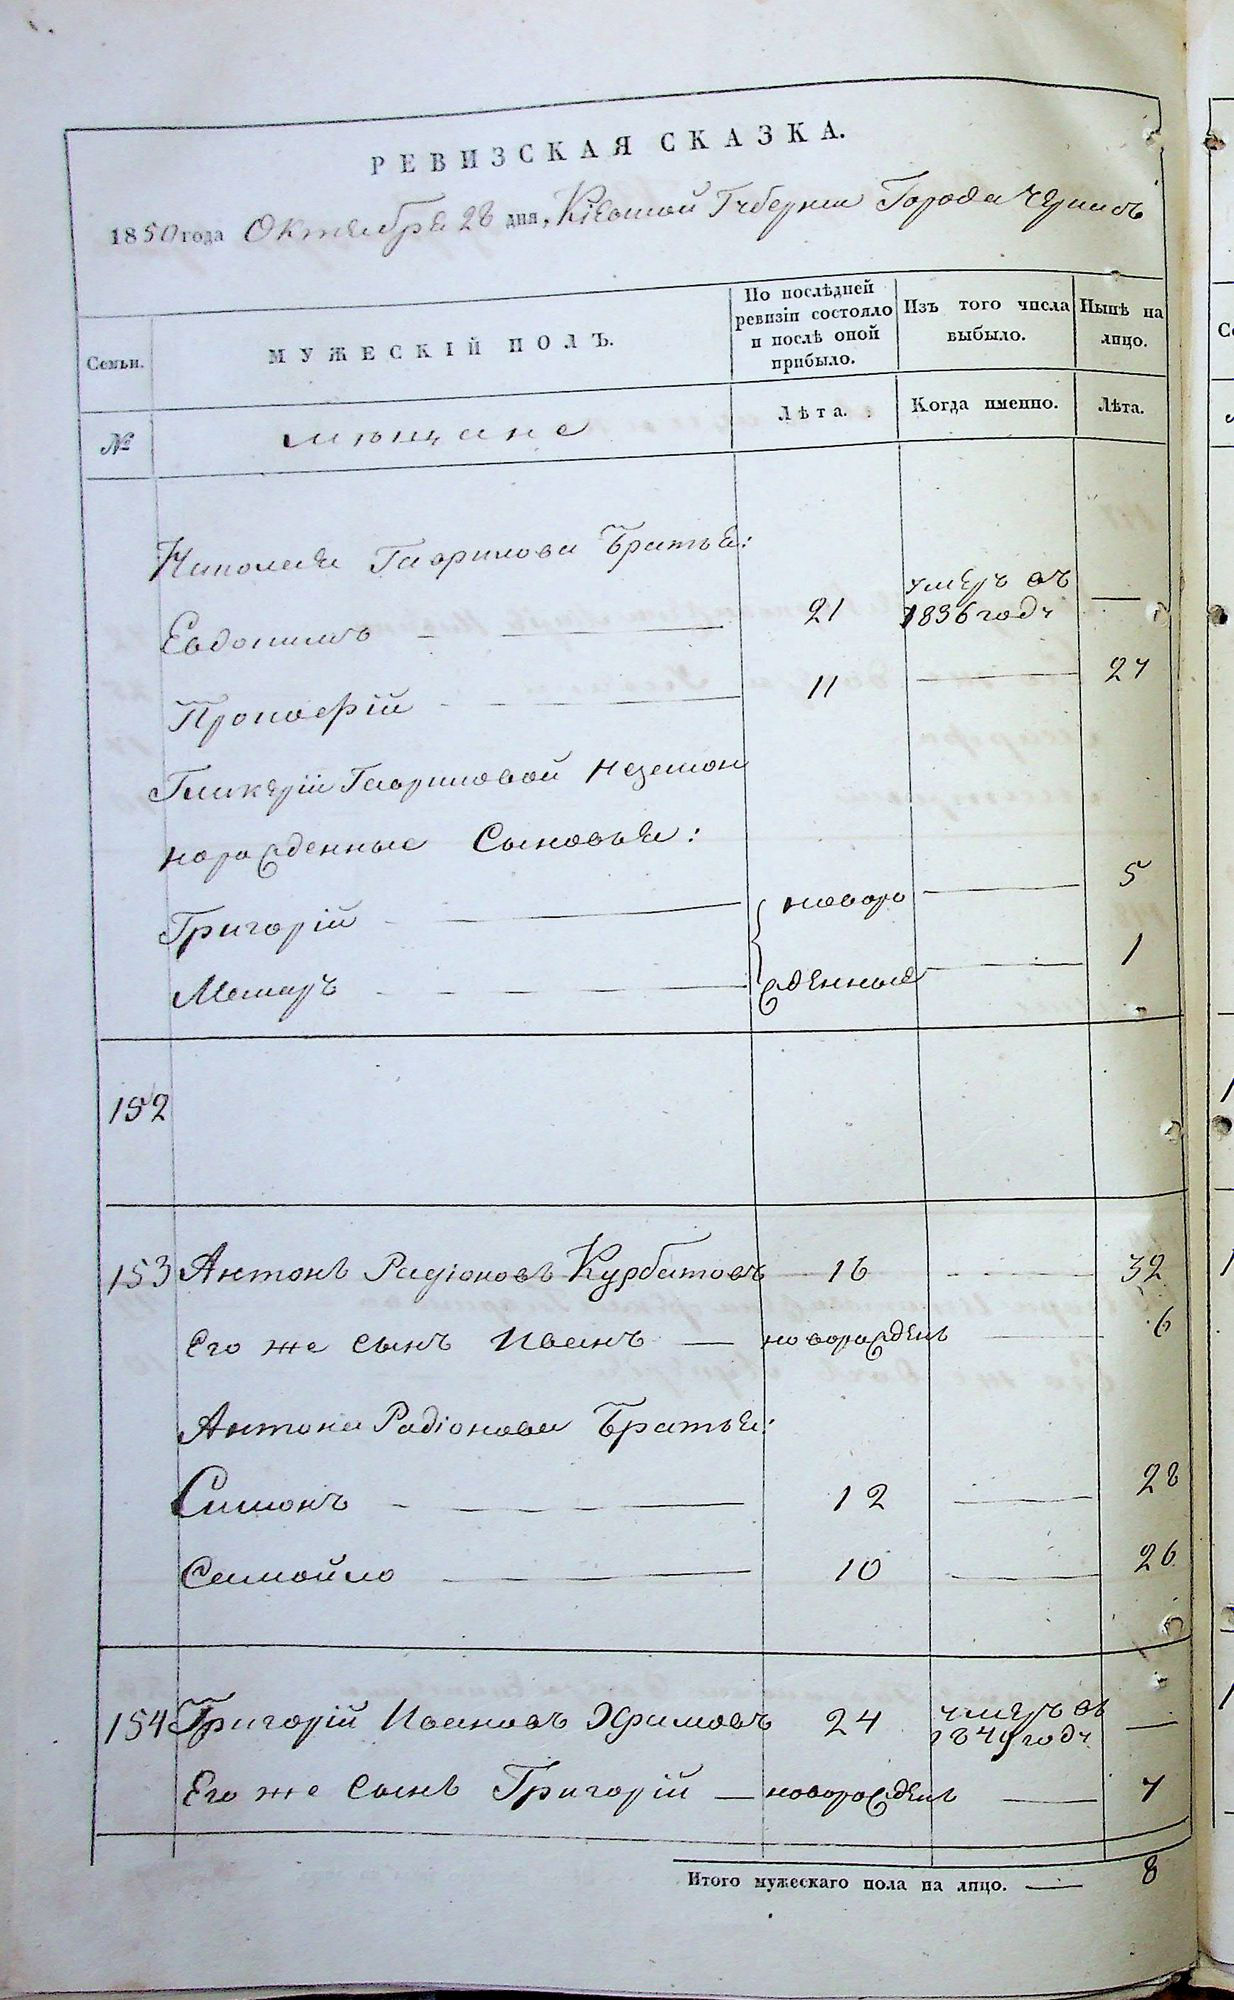 РЕВИЗСКАЯ СКАЗКА.
1850 года Октября 28 дня, Кіевской Губерніи Города
Семьи.
МУЖЕСКІЙ ПОЛЪ.
По послѣдней
ревизіи состояло
и послѣ оной
прибыло.
Изъ того числа
выбыло.
Нынѣ на
лицо.
№
мѣщане
Лѣта.
Когда именно.
Лѣта.
Николая Гаврилова Братья:
Евдокимъ 21 умеръ въ
1836 году —
Прокофій 11 — 27
Гликеріи Гавриловой незакон
норожденные Сыновья:
Григорій новоро — 5
жденные — 1
152
153 Антонъ Радіоновъ Курбатовъ 16 — 32
Его же сынъ Иванъ — новорожденъ — 6
Антона Радіонова Братья:
Симонъ 12 — 28
Самойло 10 — 26
154 Григорій Ивановъ 24 умеръ въ
1849 году —
Его же сынъ Григорій — новорожденъ — 7
Итого мужескаго пола на лицо. — 8